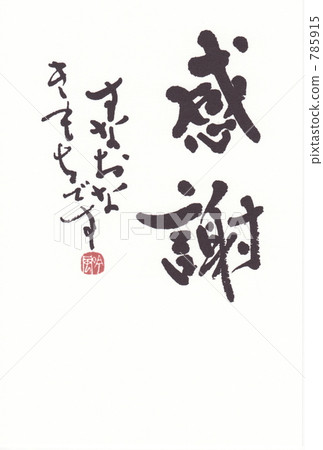 感謝
すなおな
きもちです
PIXTA
785915